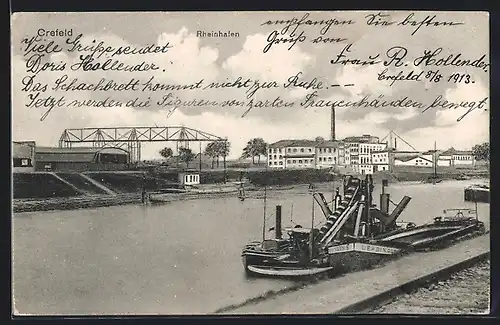 Crefeld
Rheinhafen
Viele Grüsse sendet
Doris Hollender.
empfangen Sie besten
Gruß von
Frau R. Hollender.
Crefeld 8/8 1913.
Das Schachbrett kommt nicht zur Ruhe. —
Jetzt werden die Figuren von zarten Frauenhänden bewegt.